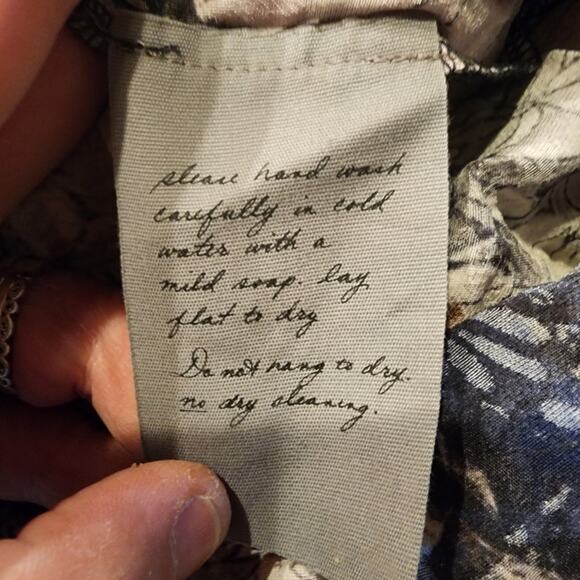 please hand wash
carefully in cold
water with a
mild soap. lay
flat to dry
Do not hang to dry.
no dry cleaning.